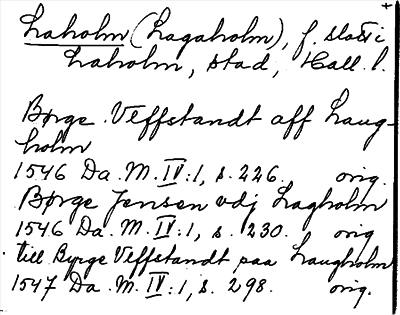 Laholm (Lagaholm), f. slott i
Laholm, stad, Hall. l.
Børge Veffstandt aff Laug-
holm
1546 Da. M. IV:1, s. 226. orig.
Børge Jensen vdj Lagholm
1546 Da. M. IV:1, s. 230. orig
till Byrge Veffstandt paa Laugholm
1547 Da. M. IV:1, s. 298. orig.